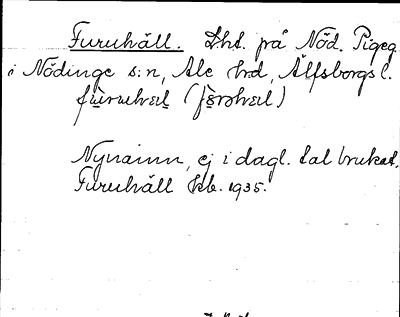 Furuhäll. Lht. på Nöd. Pigeg.
i Nödinge s:n, Ale hd, Älfsborgs l.
Nynamn, ej i dagl. tal brukat.
Furuhäll Kb. 1935.